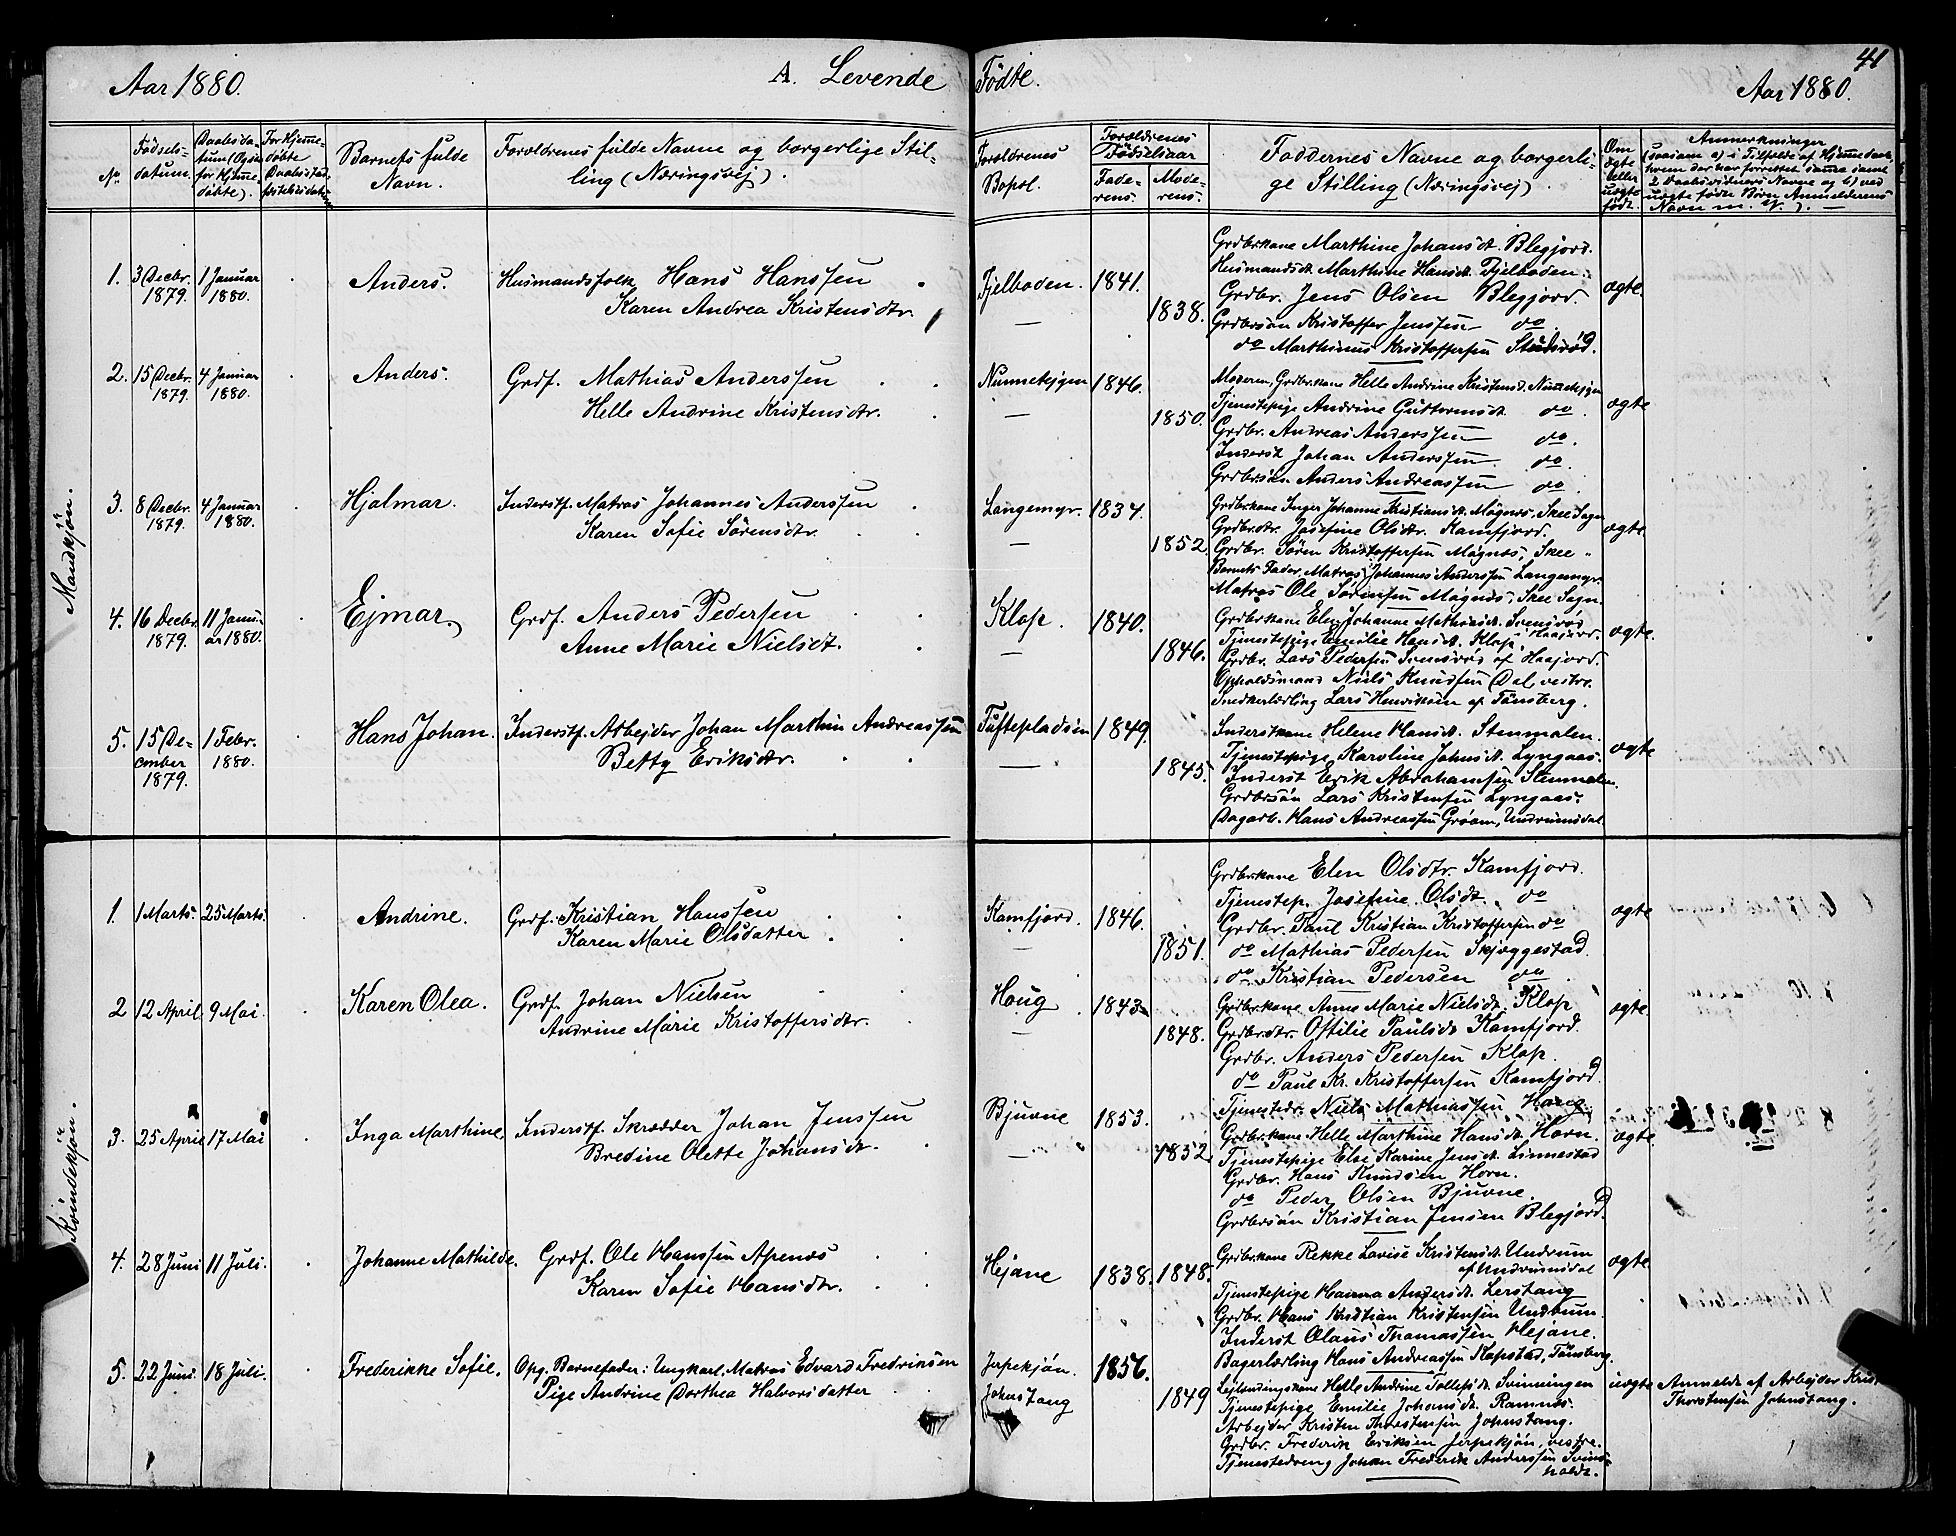 41
Aar 1880. A. Levende Födte. Aar 1880.
No. Födsels-datum. Daabsdatum (Ogsaa for Hjemmedöbte). For Hjemmedöbte Barnets fulde Navn. Forældrenes fulde Navne og borgerlige Stilling (Næringsvej). Forældrenes Bopæl. Forældrenes Födselsaar Faderens. Moderens. Faddernes Navne og borgerlige Stilling (Næringsvej). Om ægte eller uægte födt. Anmærkninger
Mandkjön.
1. 3 Decbr. 1879. 1 Januar 1880. Anders. Husmandsfolk Hans Hanssen
Karen Andrea Kristensdtr.
Fjelboden. 1841. 1838. ægte.
Grdbr.kone Marthine Johansdt. Blegjord.
Husmandsdt. Marthine Hansdt. Fjelboden.
Grdbr. Jens Olsen Blegjord.
Grdbrsön Kristoffer Jenssen do
do Marthinus Kristoffersen
2. 15 Decbr. 1879. 4 Januar 1880. Anders. Grdf. Mathias Anderssen
Helle Andrine Kristensdtr.
1846. 1850. ægte
Moderen, Grdbr.kone Helle Andrine Kristensd.
Tjenestepige Andrine Guttormsdt. do
Grdbr. Andreas Anderssen do.
Inderst Johan Anderssen do.
Grdbrsön Anders Andreassen do.
3. 8 Decbr. 1879. 4 Januar 1880. Hjalmar. Inderstf. Matros Johannes Anderssen
Karen Sofie Sörensdtr.
Langemyr. 1834. 1852. ægte
Grdbr.kone Inger Johanne Kristiansdt. Mögnæs, Skee Sogn
Grdbr.dtr. Josefine Olsdtr. Kamfjord.
Grdbr. Sören Kristoffersen Mögnæs, Skee "
Barnets Fader, Matros Johannes Anderssen Langemyr.
Matros Ole Sörensen Mögnæs, Skee Sogn.
4. 16 Decbr. 1879. 11 Januar 1880. Ejmar. Grdf. Anders Pedersen
Anne Marie Nielsdt.
Klop. 1840. 1846. ægte.
Grdbr.kone Elen Johanne Mathiasdt. Svensröd
Tjenestepige Emilie Hansdt. Klop. Haajord.
Grdbr. Lars Pedersen Svensröd af Haajord.
Opholdsmand Niels Knudssen Dal, vestre.
Snedkerlærling Lars Henriksen af Tönsberg.
5. 15 December 1879. 1 Febr. 1880. Hans Johan. Inderstf. Arbejder Johan Marthin Andreassen
Betty Eriksdtr.
Tufteplads 1849. 1845. ægte
Inderstkone Helene Hansdt. Stenmalen.
Tjenestepige Karoline Johnsdt. Lyngaas.
Inderst Erik Abrahamsen Stenmalen.
Grdbrsön Lars Kristensen Lyngaas.
Dagarb. Hans Andreassen Gröam, Undrumsdal
Kvindekjön.
1. 1 Marts. 25 Marts. Andrine. Grdf. Kristian Hanssen
Karen Marie Olsdatter
Kamfjord. 1846. 1851. ægte
Grdbr.kone Elen Olsdtr. Kamfjord.
Tjenestep. Josefine Olsdt. do
Grdbr. Paul Kristian Kristoffersen do
do Mathias Pedersen Skjæggestad
do Kristian Pedersen do
2 12 April 9 Mai. Karen Olea. Grdf. Johan Nielsen
Andrine Marie Kristoffersdtr.
Houg 1843 1848. ægte.
Grdbr.kone Anne Marie Nielsdt. Klop
Grdbr.dtr. Ottilie Paulsdt. Kamfjord.
Grdbr. Anders Pedersen Klop.
do Paul Kr. Kristoffersen Kamfjord.
Tjenestedr. Niels Mathiassen Houg
3. 25 April 17 Mai Inga Marthine Inderstf. Skrædder Johan Jenssen
Bredine Olette Johansdt.
Bjuvne 1853. 1852. ægte
Grdbr.kone Helle Marthine Hansdt. Horn.
Tjenestepige Else Karine Jensdt. Linnestad
Grdbr. Hans Knudsen Horn.
do Peder Olsen Bjuvne.
Grdbrsön Kristian Jensen Blegjord.
4. 28 Juni 11 Juli. Johanne Mathilde. Grdf. Ole Hanssen Apenæs
Karen Sofie Hansdtr.
Hejane 1838. 1848. ægte
Grdbr.kone Rekke Lovise Kristensdt. Undrum
af Undrumsdal
Tjenestepige Hanna Andersdt. Lerstang
Grdbr. Hans Kristian Kristensen Undrum.
Inderst Olaus Thomassen Hejane.
Bagerlærling Hans Andreassen Kopstad, Tönsberg.
5. 22 Juni. 18 Juli. Frederikke Sofie. Opg. Barnefader: Ungkarl, Matros Edvard Fredriksen
Pige Andrine Dorthea Halvorsdatter
Jerpekjön. Johnstang 1856. 1849 uægte
Lejlændingskone Helle Andrine Tollefsdt. Svinningen
Tjenestepige Emilie Johansdt. Ramnæs.
Arbejder Kristen Thorstensen Johnstang.
Grdbr. Frederik Eriksen Jerpekjön, vestre.
Tjenestedreng Johan Frederik Anderssen
Anmeldt af Arbejder
Thorstensen Johnstang.